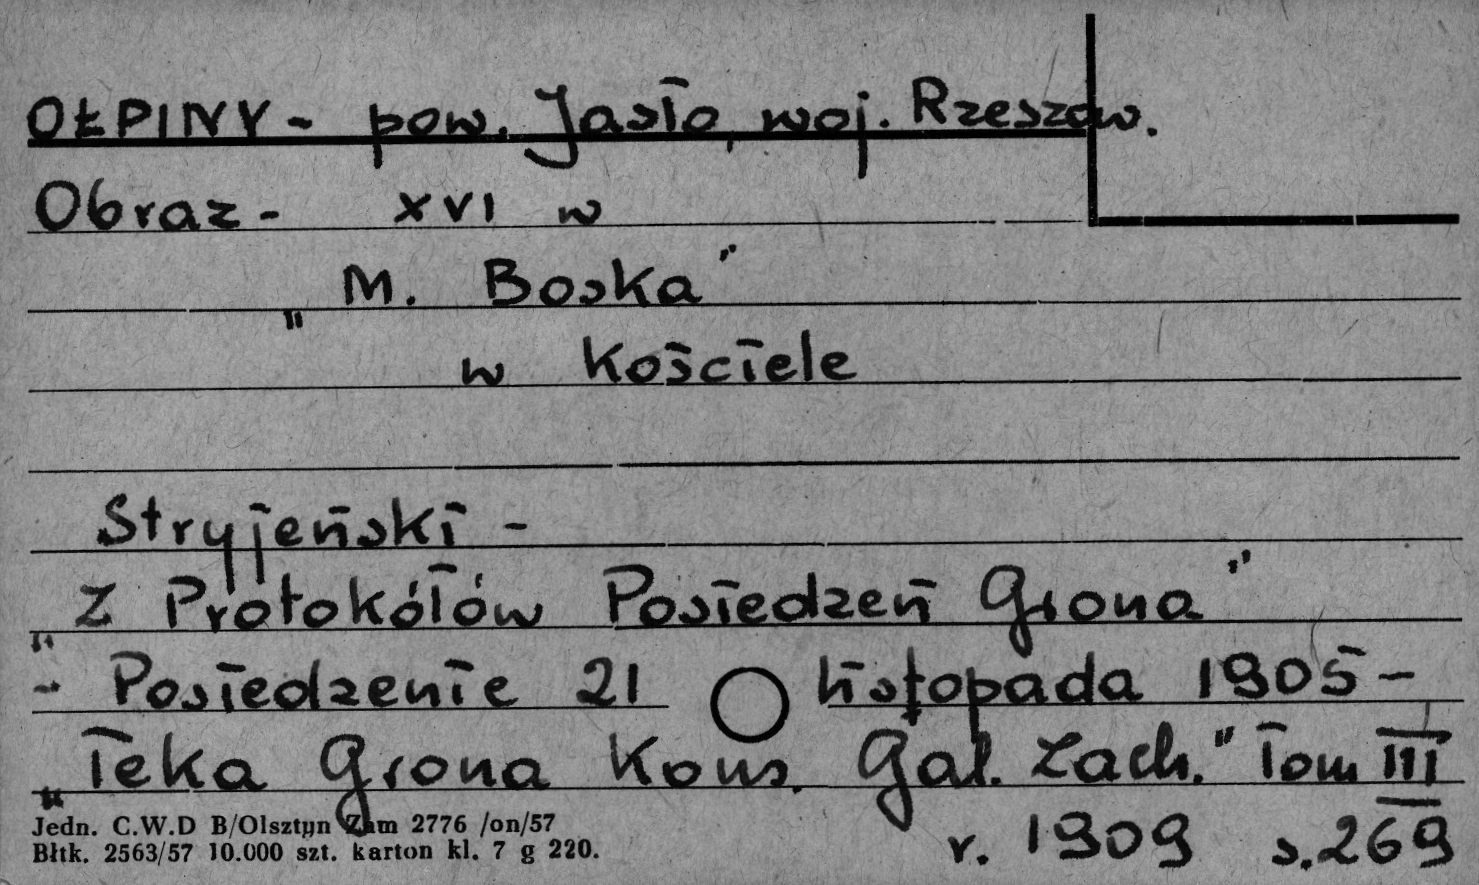 OŁPINY - pow. Jasło, woj. Rzeszów.
Obraz - XVI w
„M. Boska"
w Kościele
Stryjeński -
„Z Protokółów Posiedzeń Grona"
- Posiedzenie 21 listopada 1905 -
„Teka Grona Kons. Gal. Zach." Tom III
r. 1909 s. 269
Jedn. C.W.D B/Olsztyn Zam 2776 /on/57
Błtk. 2563/57 10.000 szt. karton kl. 7 g 220.